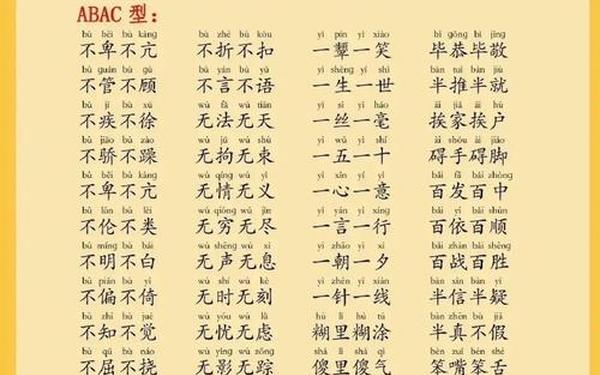 ABAC 型：
bù bēi bù kàng bù zhé bù kòu yì pín yí xiào bì gōng bì jìng
不卑不亢 不折不扣 一颦一笑 毕恭毕敬
bù guǎn bù gù bù yán bù yǔ yì shēng yí shì bàn tuī bàn jiù
不管不顾 不言不语 一生一世 半推半就
bù jí bù xú wú fǎ wú tiān yì sī yì háo āi jiā āi hù
不疾不徐 无法无天 一丝一毫 挨家挨户
bù jiāo bù zào wú jū wú shù yī wǔ yī shí ài shǒu ài jiǎo
不骄不躁 无拘无束 一五一十 碍手碍脚
bù bēi bù kàng wú qíng wú yì yì xīn yí yì bǎi fā bǎi zhòng
不卑不亢 无情无义 一心一意 百发百中
bù lún bù lèi wú qióng wú jìn yì yán yì xíng bǎi yī bǎi shùn
不伦不类 无穷无尽 一言一行 百依百顺
bù míng bù bái wú shēng wú xī yì zhāo yì xī bǎi zhàn bǎi shèng
不明不白 无声无息 一朝一夕 百战百胜
bù piān bù yǐ wú shí wú kè yì zhēn yí xiàn bàn xìn bàn yí
不偏不倚 无时无刻 一针一线 半信半疑
bù zhī bù jué wú yōu wú lǜ hú lǐ hú tú bàn zhēn bù jiǎ
不知不觉 无忧无虑 糊里糊涂 半真不假
bù qū bù náo wú yǐng wú zōng shǎ lǐ shǎ qì bèn zuǐ bèn shé
不屈不挠 无影无踪 傻里傻气 笨嘴笨舌